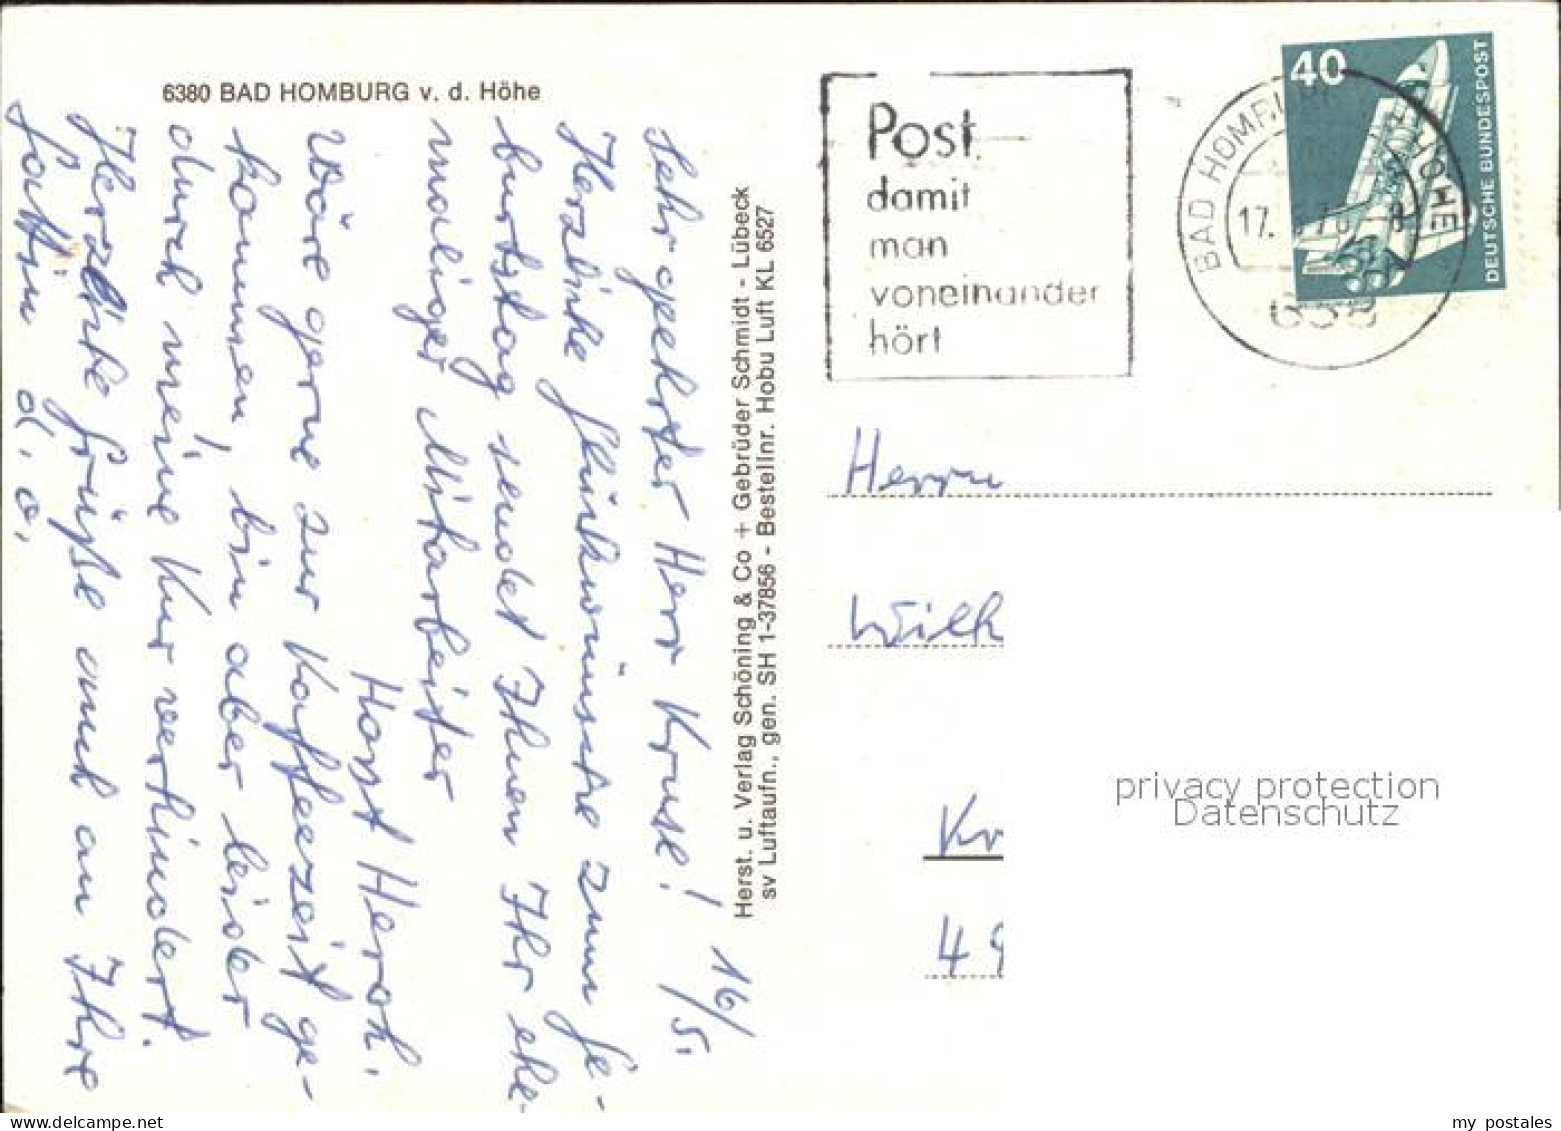 6380 BAD HOMBURG v. d. Höhe
16/5.
Sehr geehrter Herr Kruse!
Herzliche Glückwünsche zum Ge-
burtstag sendet Ihnen Ihr ehe-
maliger Mitarbeiter
Horst Heroh.
Wäre gerne zur Kaffeezeit ge-
kommen, bin aber leider
durch meine Kur verhindert.
Herzliche Grüße auch an Ihre
Gattin d. O.
Herst. u. Verlag Schöning & Co + Gebrüder Schmidt - Lübeck
sv Luftaufn., gen. SH 1-37856 - Bestellnr. Hobu Luft KL 6527
Post
damit
man
voneinander
hört
BAD HOMBURG HÖHE
17. 7 8
638
40
DEUTSCHE BUNDESPOST
Herrn
Wilh
Kr
49
privacy protection
Datenschutz
my postales